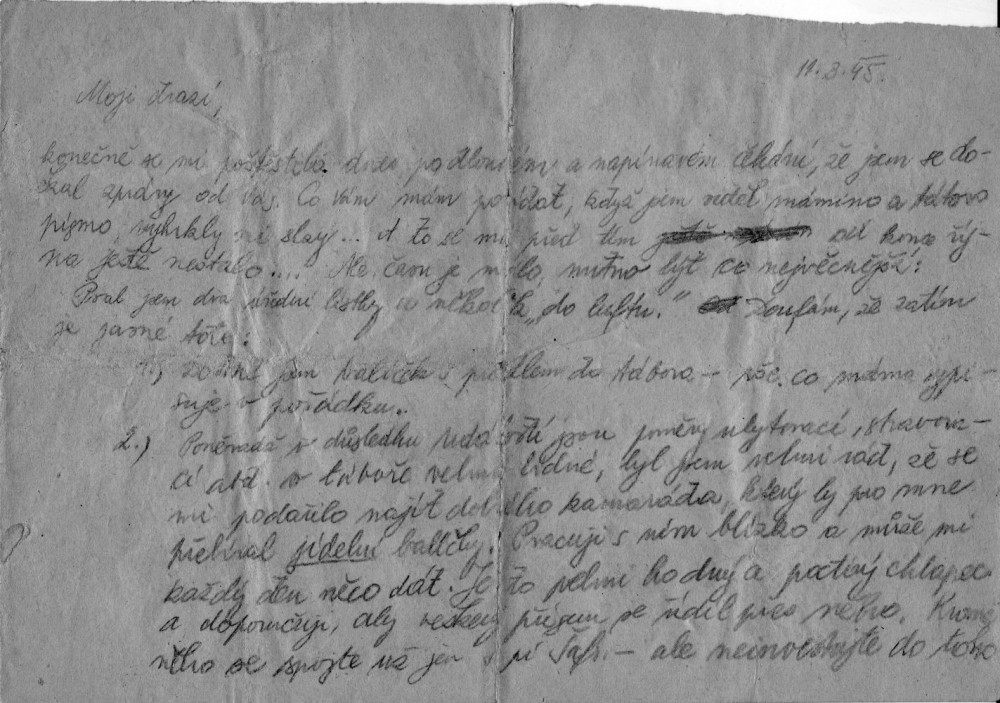 11.3.45.
Moji drazí,
konečně se mi poštěstilo po dlouhém a napínavém čekání, že jsem se do-
čkal zprávy od Vás. Co Vám mám povídat, když jsem viděl mámino a tátovo
písmo, vyhrkly mi slzy... A to se mi před tím od konce říj-
na ještě nestalo.... Ale času je málo, nutno být co nejvěcnější:
Psal jsem dva úřední lístky a několik "do luftu." Doufám, že zatím
je jasné toto:
1.) Dostal jsem balíček s prádlem do tábora — vše, co máma vypi-
suje v pořádku.
2.) Poněvadž v důsledku událostí jsou poměry ubytovací, stravova-
cí atd. v táboře velmi bídné, byl jsem velmi rád, že se
mi podařilo najít dobrého kamaráda, který by pro mne
přebíral jídelní balíčky. Pracuji s ním blízko a může mi
každý den něco dát. Je to velmi hodný a poctivý chlapec
a doporučuji, aby veškerý příjem se řídil přes něho. Kromě
něho se spojte už jen s pí — ale neinvestujte do toho